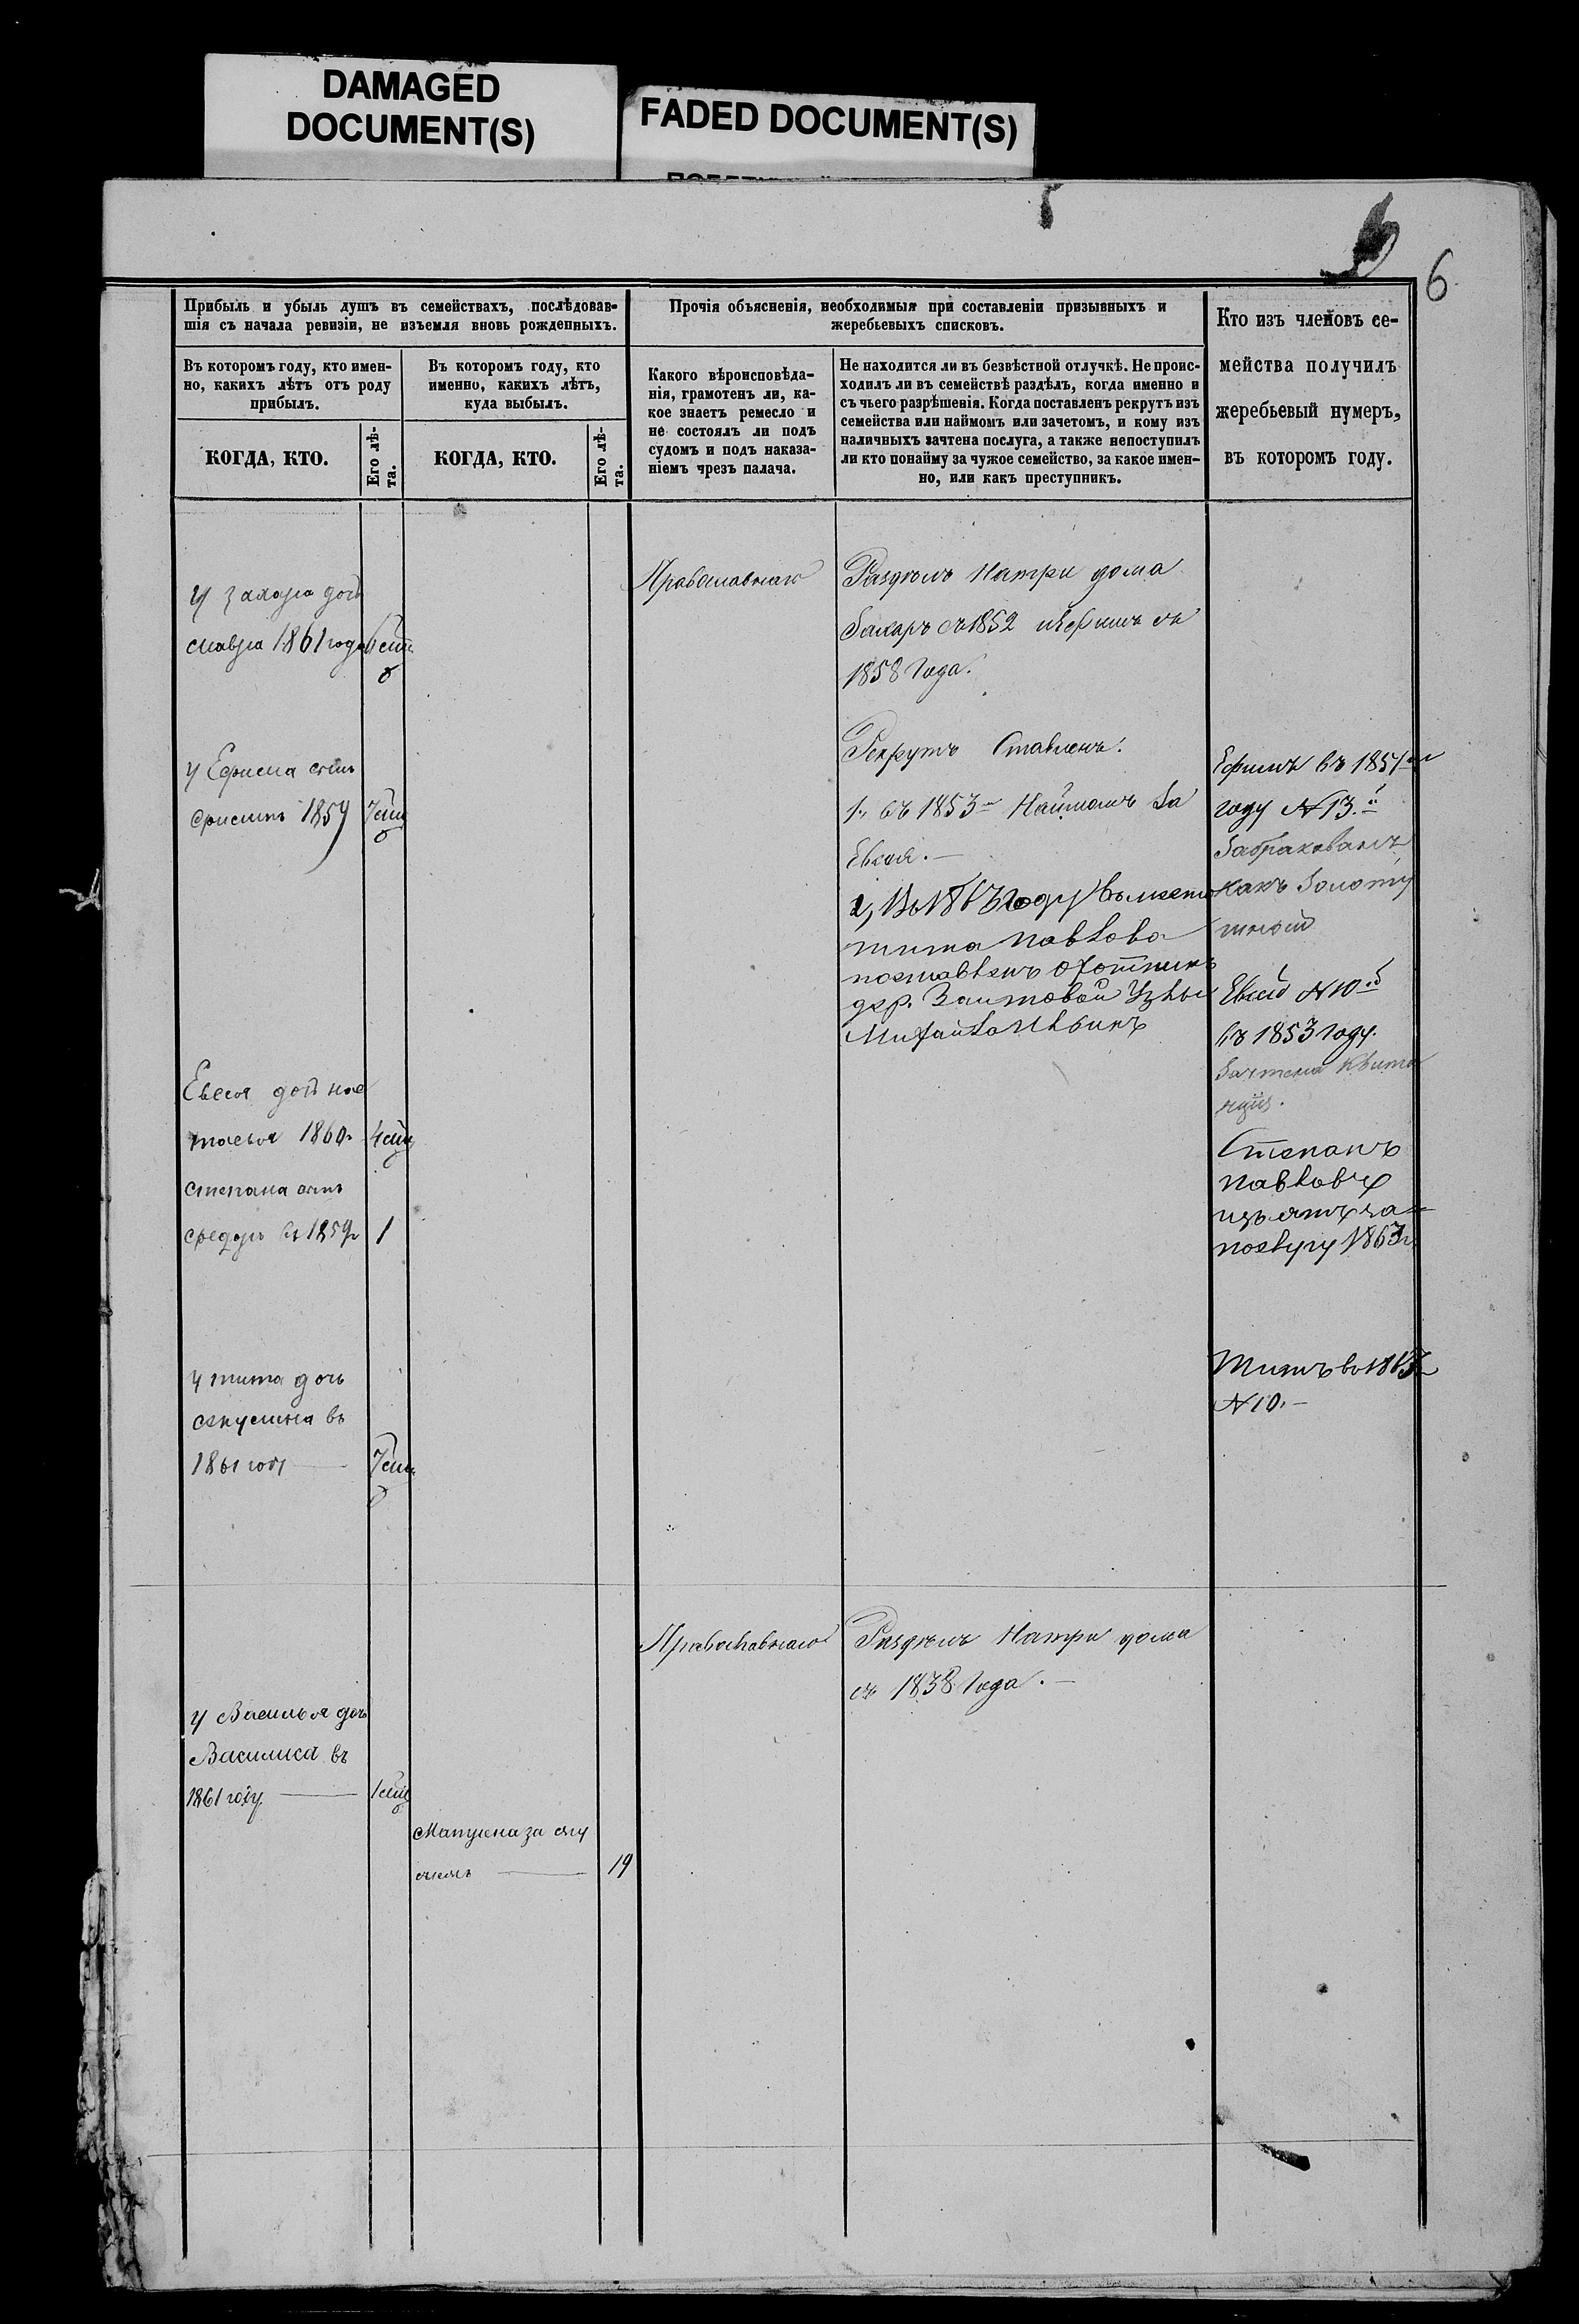 DAMAGED
DOCUMENT(S)
FADED DOCUMENT(S)
6
Прибыль и убыль душъ въ семействахъ, послѣдовав-
шія съ начала ревизіи, не изъемля вновь рожденныхъ.
Въ которомъ году, кто имен-
но, какихъ лѣтъ отъ роду
прибылъ.
КОГДА, КТО.
Его лѣ-
та.
Въ которомъ году, кто
именно, какихъ лѣтъ,
куда выбылъ.
КОГДА, КТО.
Его лѣ-
та.
Прочія объясненія, необходимыя при составленіи призывныхъ и
жеребьевыхъ списковъ.
Какого вѣроисповѣда-
нія, грамотенъ ли, ка-
кое знаетъ ремесло и
не состоялъ ли подъ
судомъ и подъ наказа-
ніемъ чрезъ палача.
Не находится ли въ безвѣстной отлучкѣ. Не проис-
ходилъ ли въ семействѣ раздѣлъ, когда именно и
съ чьего разрѣшенія. Когда поставленъ рекрутъ изъ
семейства или наймомъ или зачетомъ, и кому изъ
наличныхъ зачтена послуга, а также непоступилъ
ли кто понайму за чужое семейство, за какое имен-
но, или какъ преступникъ.
Кто изъ членовъ се-
мейства получилъ
жеребьевый нумеръ,
въ которомъ году.
у Захара дочь
мавра 1861 года
у Ефима сынъ
1859
Евсея дочь нас
тасья 1860
степана сынъ
федоръ въ 1859 1
у тита дочь
въ
1861 году
у Василья дочь
Василиса въ
1861 году
за
19
Православнаго
Раздѣлъ Натри дома
Захаръ съ 1852 иЕфимъ съ
1858 Года.
Рекрутъ Ставленъ.
1, въ 1853 Наймомъ За
Евсея.
2, Въ 1863 году вместо
тита Павлова
поставленъ охотникъ
дер.
Михайло Ильинъ
Ефимъ въ 1851
году №13.
Забракованъ
какъ Золоту
шной
Евсей №10
въ 1853 году.
Зачтена Квита
нція.
Степанъ
Павловъ
изъятъ за
послугу 1863 г.
Титъ въ 1863
№10.
Православнаго
Раздѣлъ Натри дома
съ 1838 Года.